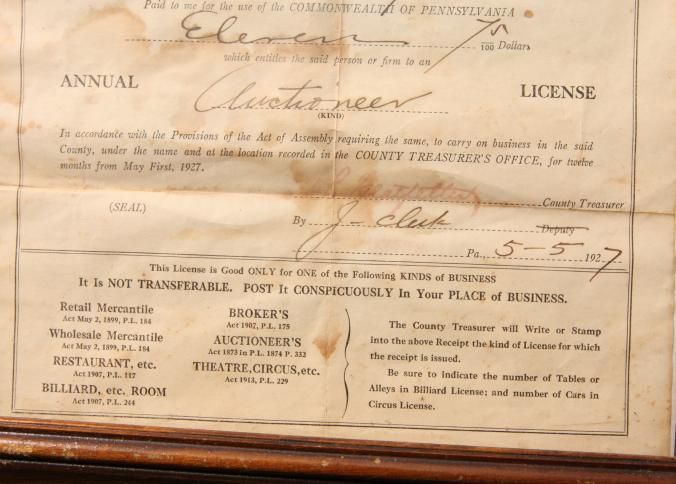 Paid to me for the use of the COMMONWEALTH OF PENNSYLVANIA
Eleven 75/100 Dollars
which entitles the said person or firm to an
ANNUAL Auctioneer LICENSE
(KIND)
In accordance with the Provisions of the Act of Assembly requiring the same, to carry on business in the said
County, under the name and at the location recorded in the COUNTY TREASURER'S OFFICE, for twelve
months from May First, 1927.
County Treasurer
(SEAL)
By J- Clerk Deputy
Pa., 5-5 1927
This License is Good ONLY for ONE of the Following KINDS of BUSINESS
It Is NOT TRANSFERABLE. POST It CONSPICUOUSLY In Your PLACE of BUSINESS.
Retail Mercantile
Act May 2, 1899, P.L. 184
Wholesale Mercantile
Act May 2, 1899, P.L. 184
RESTAURANT, etc.
Act 1907, P.L. 117
BILLIARD, etc. ROOM
Act 1907, P.L. 244
BROKER'S
Act 1907, P.L. 175
AUCTIONEER'S
Act 1873 in P.L. 1874 P. 332
THEATRE, CIRCUS, etc.
Act 1913, P.L. 229
The County Treasurer will Write or Stamp
into the above Receipt the kind of License for which
the receipt is issued.
Be sure to indicate the number of Tables or
Alleys in Billiard License; and number of Cars in
Circus License.